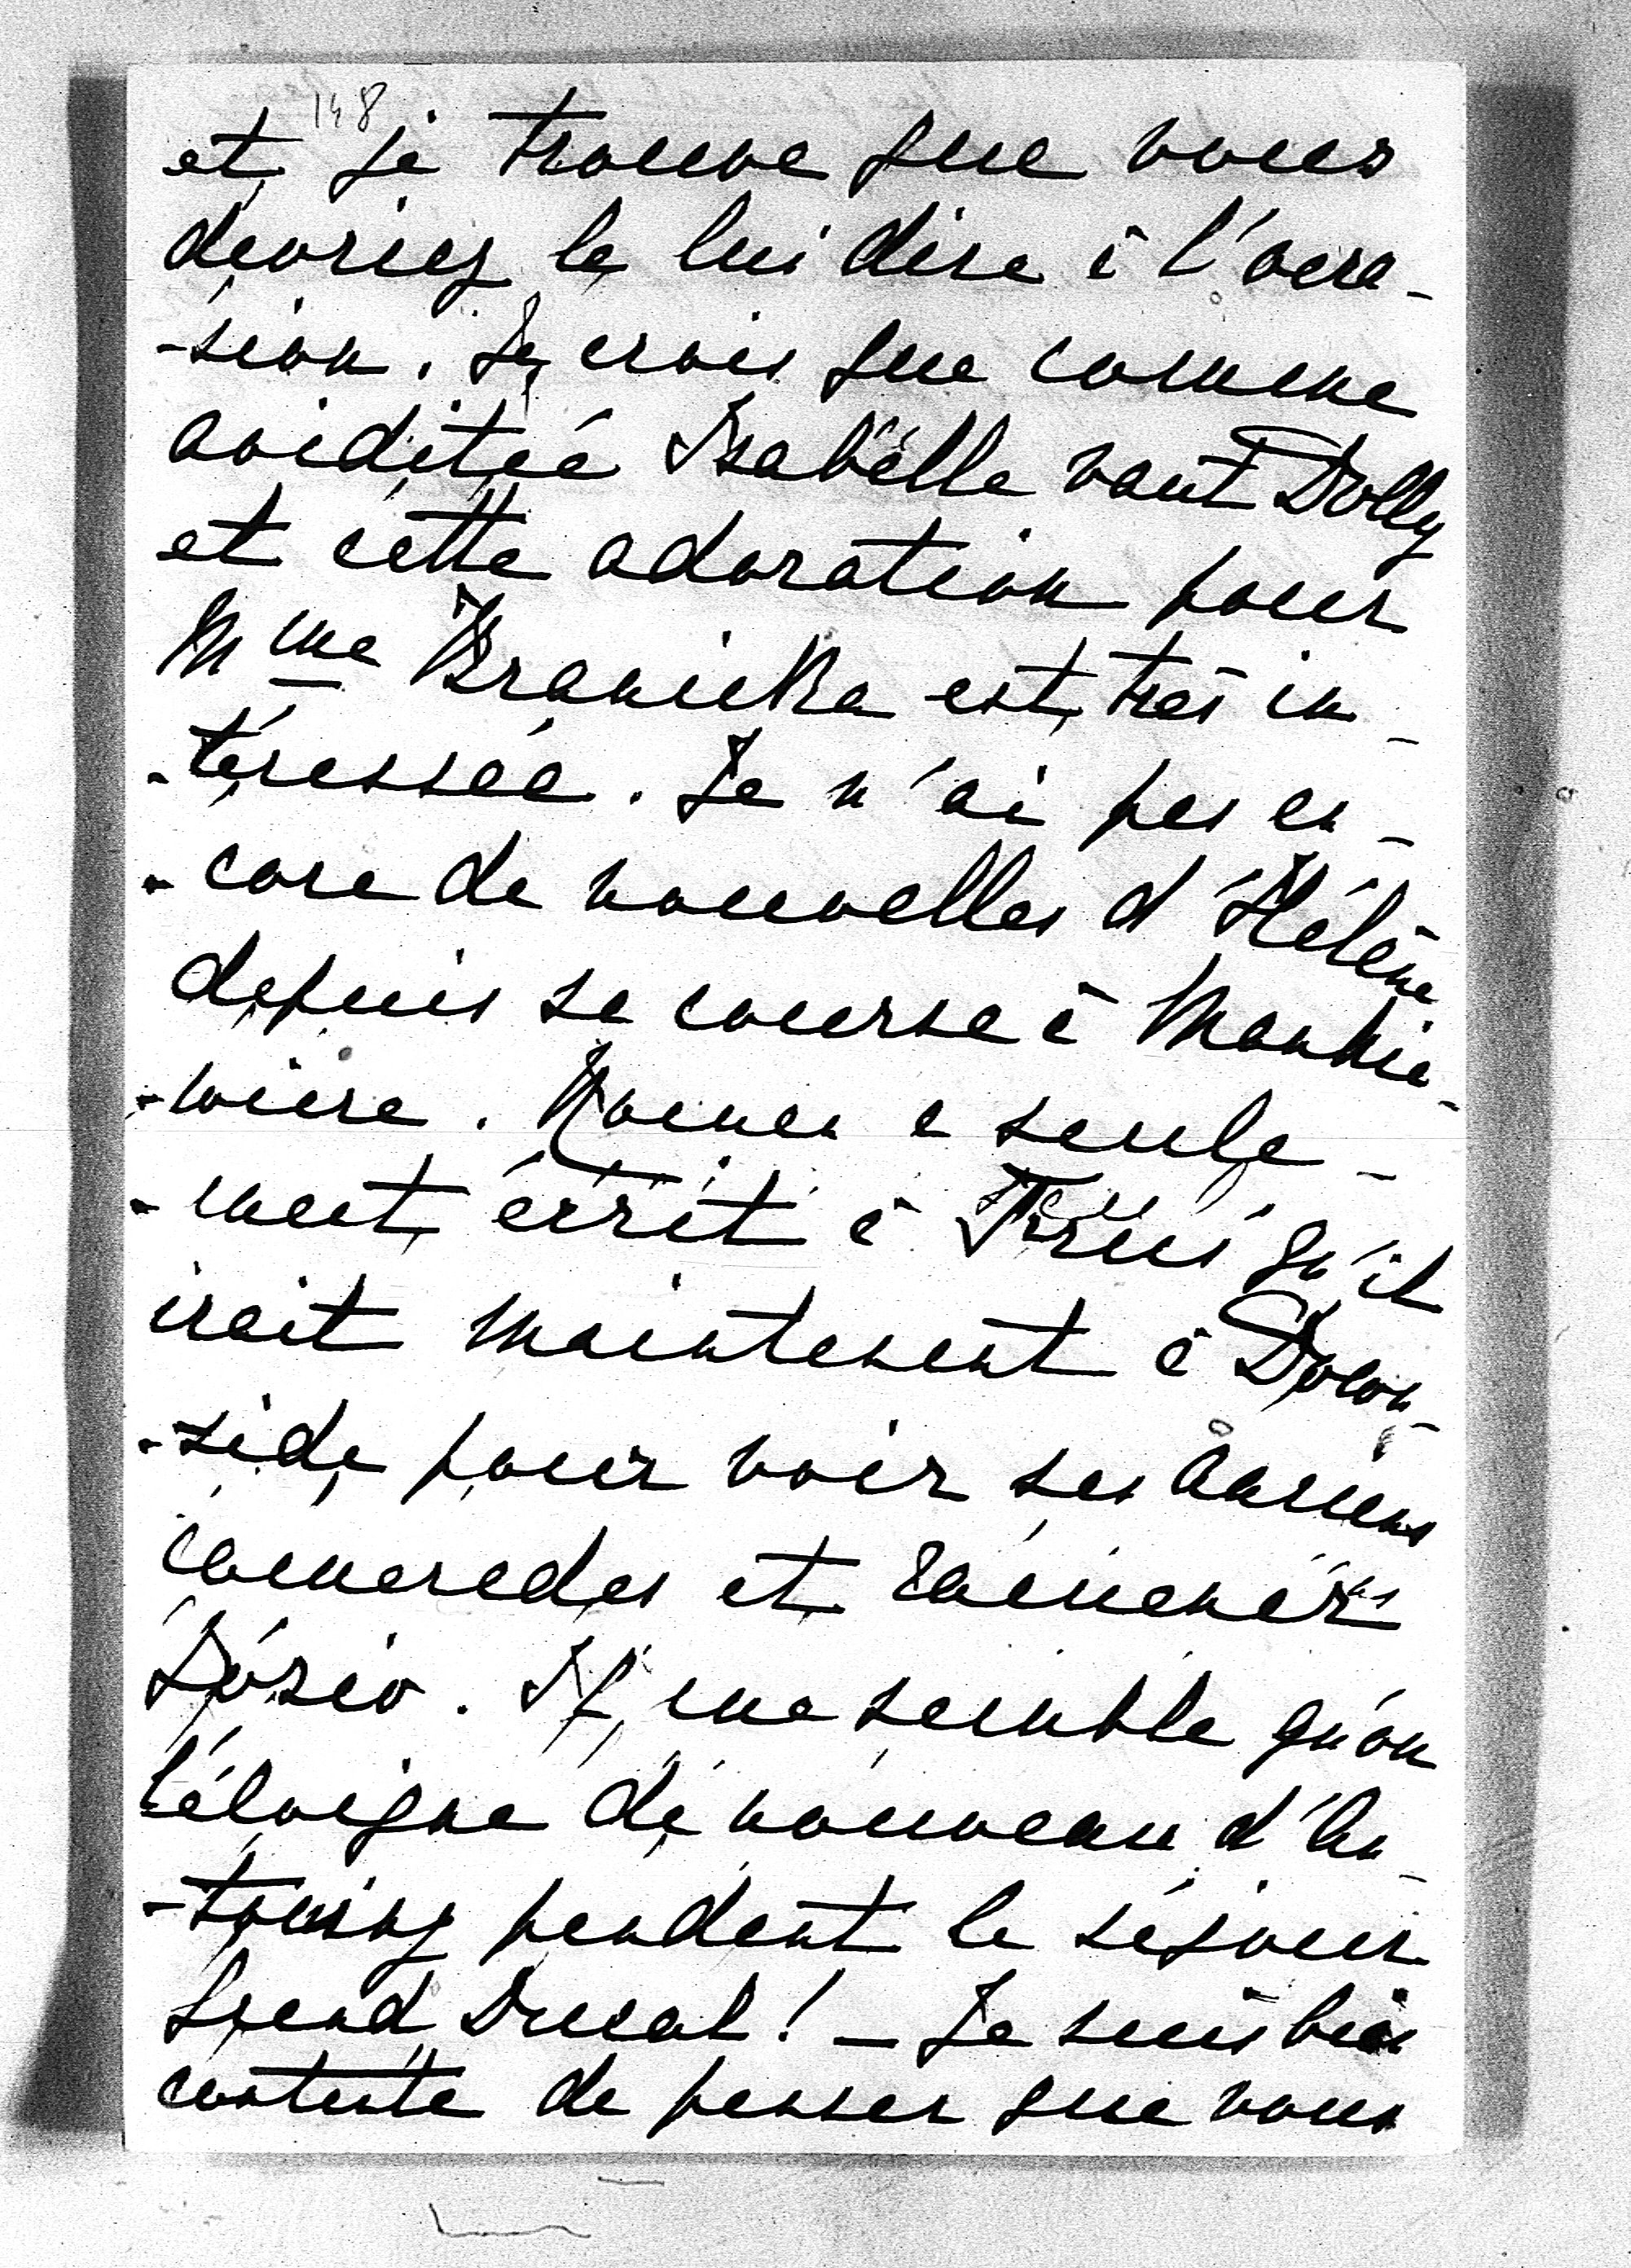 148
et je trouve que vous
devriez le lui dire à l'occa-
-sion. Je crois que comme
aviditée Isabelle vaut Dolly
et cette adoration pour
Mme Branicka est très in-
-téressée. Je n'ai pas en-
-core de nouvelles d'Hélène
depuis sa course à Mankie-
-wicze. Roman a seule-
-ment écrit à qu'il
irait maintenant à Down-
-side pour voir ses anciens
camerades et ramener
Józio. Il me semble qu'on
l'éloigne de nouveau d'An-
-toniny pendant le séjour
Grand Ducal! — Je suis bien
contente de penser que vous